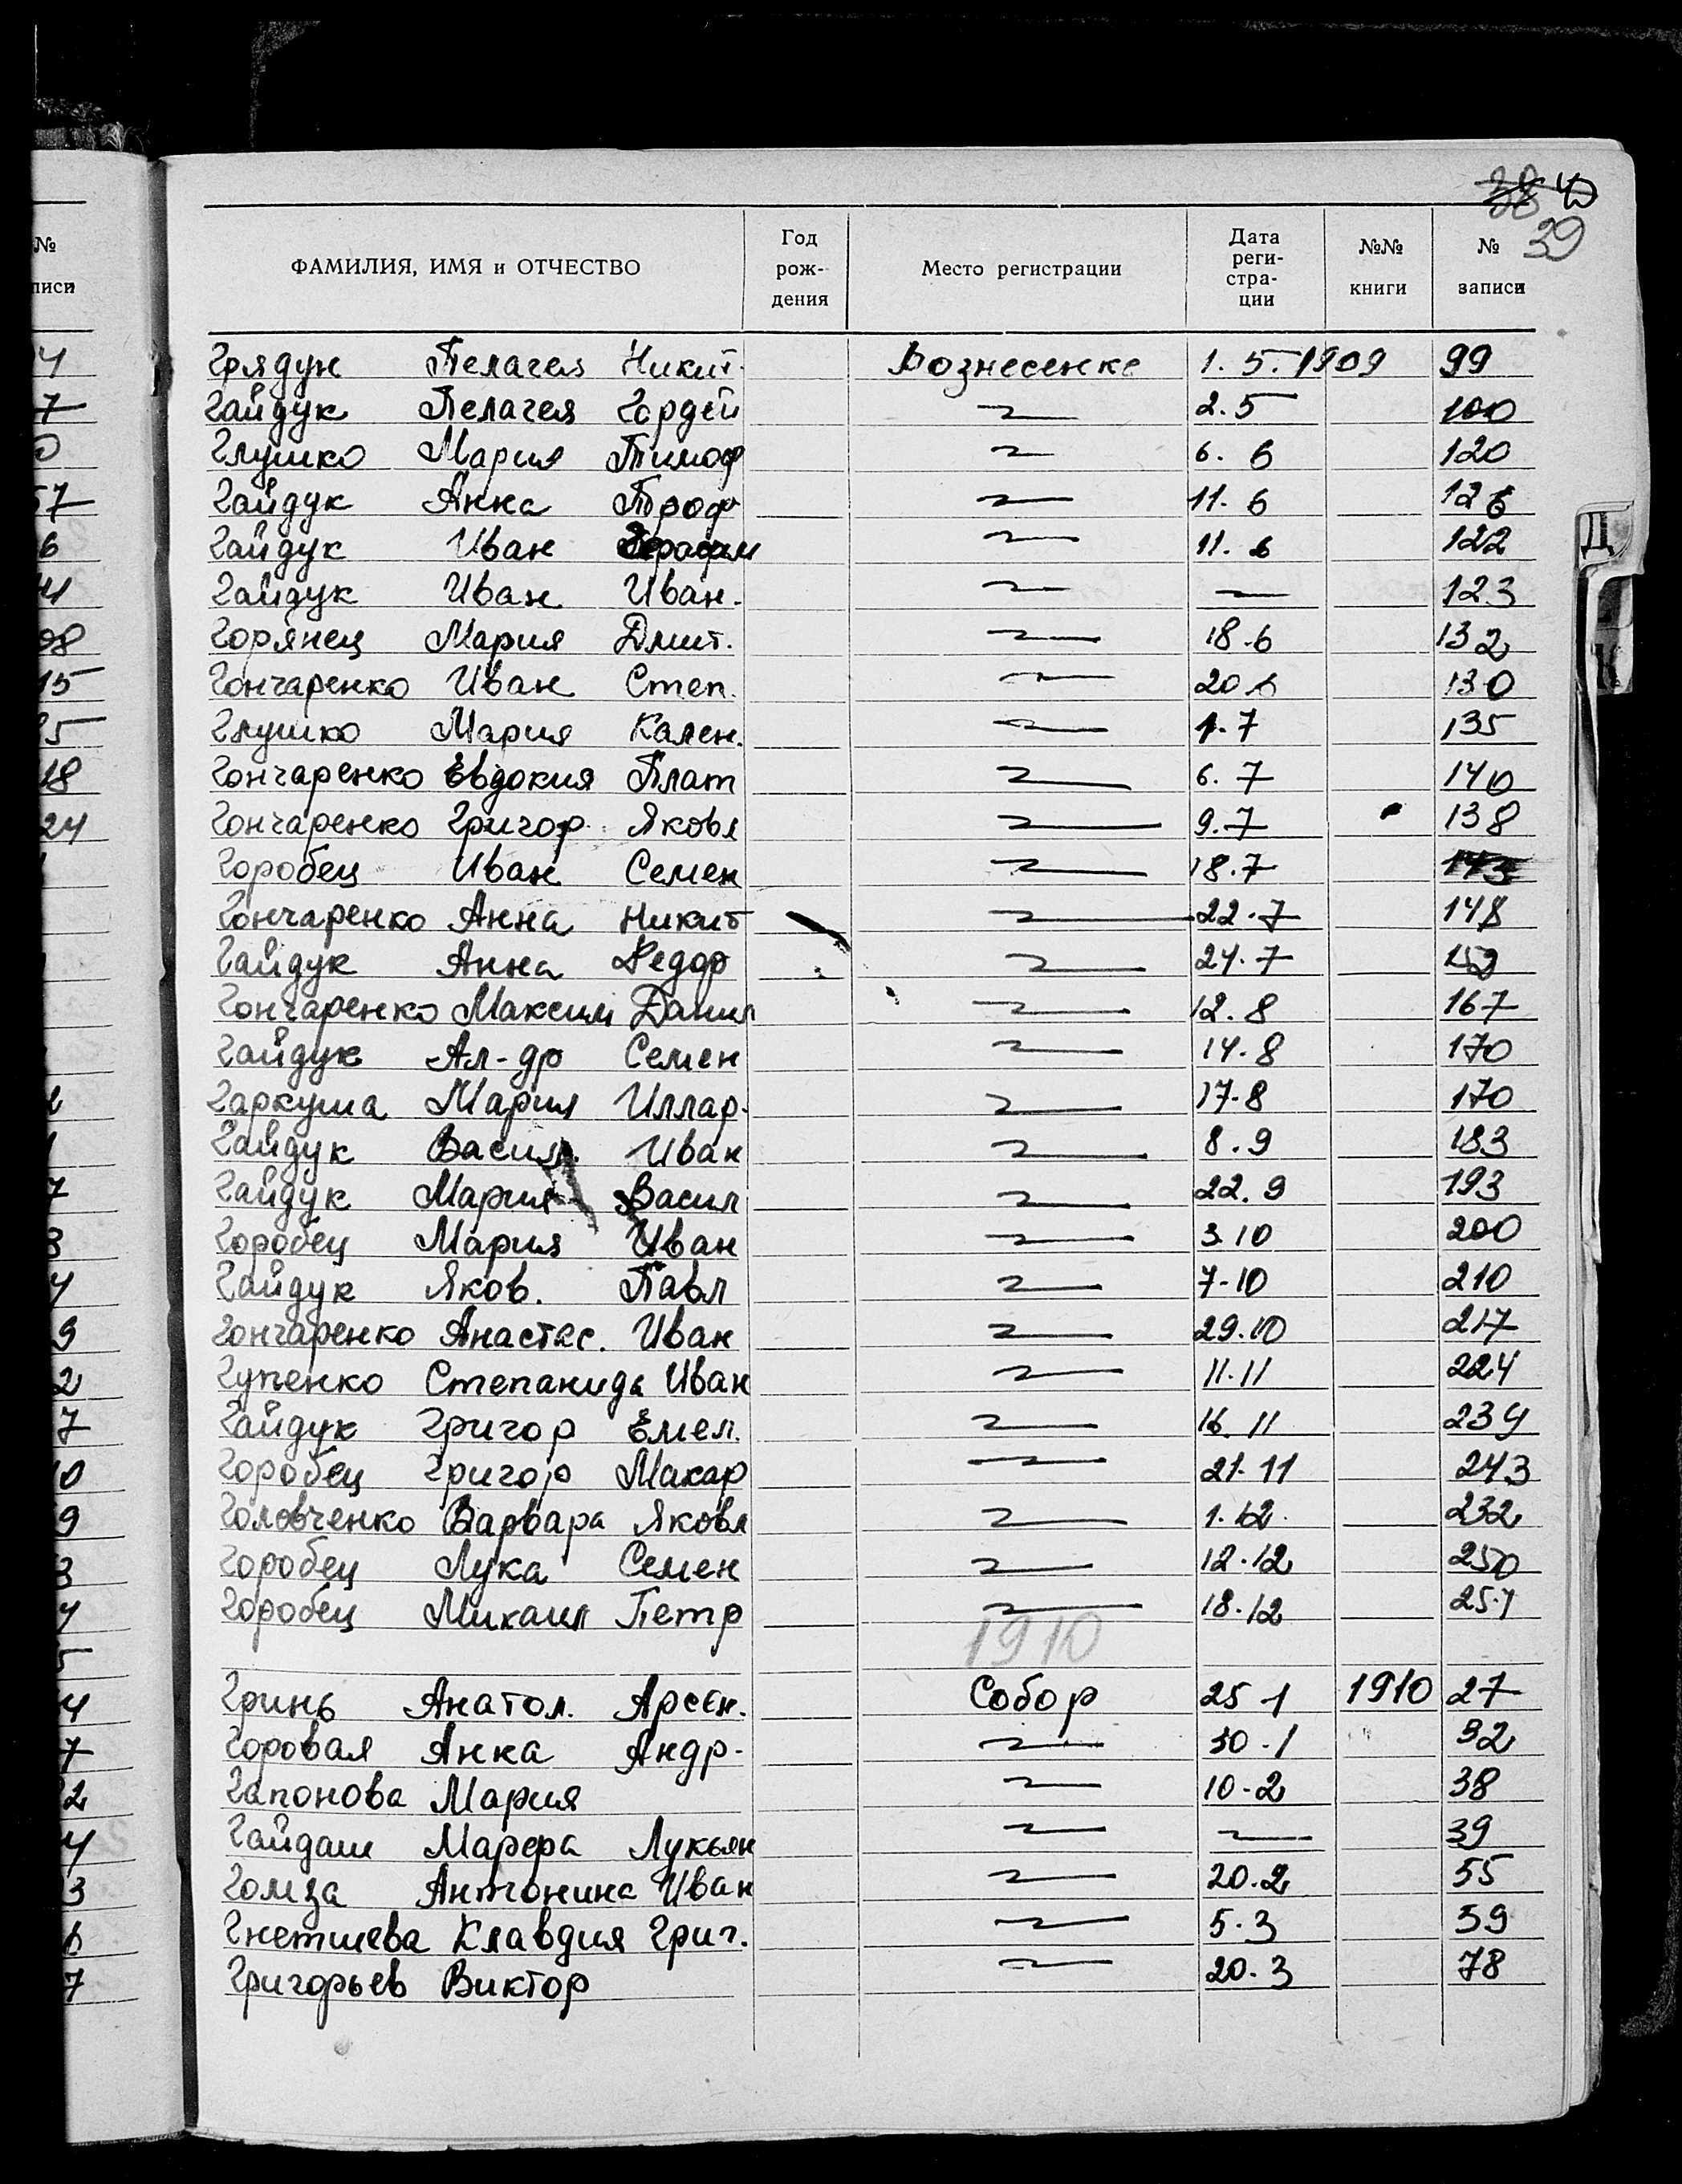 38 40
39
ФАМИЛИЯ, ИМЯ и ОТЧЕСТВО Год рож- дения Место регистрации Дата реги- стра- ции №№ книги № записи
Грядун Пелагея Никит. Вознесенке 1. 5. 1909 99
Гайдук Пелагея Гордей 2. 5 100
Глушко Мария Тимоф 6. 6 120
Гайдук Анна Троф 11. 6 126
Гайдук Иван 11. 6 122
Гайдук Иван Иван. 123
Горянец Мария Дмит. 18.6 132
Гончаренко Иван Степ. 20.6 130
Глушко Мария Кален. 1. 7 135
Гончаренко Евдокия Плат 6. 7 140
Гончаренко Григор. Яковл 9. 7 138
Горобец Иван Семен 18. 7 143
Гончаренко Анна Никит 22. 7 148
Гайдук Анна Федор 24. 7 152
Гончаренко Максим Данил 12. 8 167
Гайдук Ал-др Семен 14. 8 170
Гаркуша Мария Иллар. 17-8 170
Гайдук Васил. Иван 8. 9 183
Гайдук Мария Васил 22. 9 193
Горобец Мария Иван 3.10 200
Гайдук Яков. Павл 7-10 210
Гончаренко Анастас. Иван 29.10 217
Гупенко Степанида Иван 11.11 224
Гайдук Григор Емел. 16. 11 239
Горобец Григор Макар 21. 11 243
Головченко Варвара Яковл 1. 12. 232
Горобец Лука Семен 12.12 250
Горобец Михаил Петр 18.12 257
1910
Гринь Анатол. Арсен. Собор 25 1 1910 27
Горовая Анна Андр. 30 . 1 32
Гапонова Мария 10-2 38
Гайдаш Марфа Лукьян 39
Гомза Антонина Иван 20.2 55
Гнетиева Клавдия Григ. 5. 3 59
Григорьев Виктор 20. 3 78
Д
К